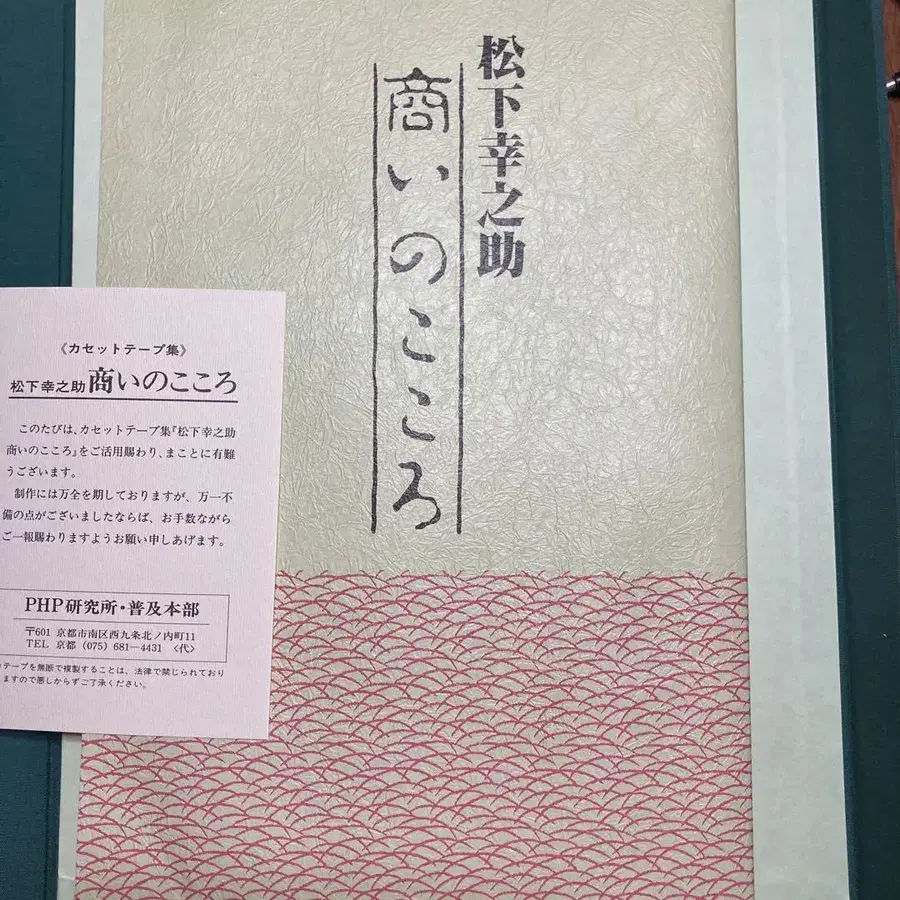 松下幸之助
商いのこころ
《カセットテープ集》
松下幸之助 商いのこころ
このたびは、カセットテープ集『松下幸之助
商いのこころ』をご活用賜わり、まことに有難
うございます。
制作には万全を期しておりますが、万一不
備の点がございましたならば、お手数ながら
ご一報賜わりますようお願い申しあげます。
PHP研究所・普及本部
〒601 京都市南区西九条北ノ内町11
TEL 京都 (075) 681―4431 〈代〉
テープを無断で複製することは、法律で禁じられており
ますので悪しからずご了承ください。